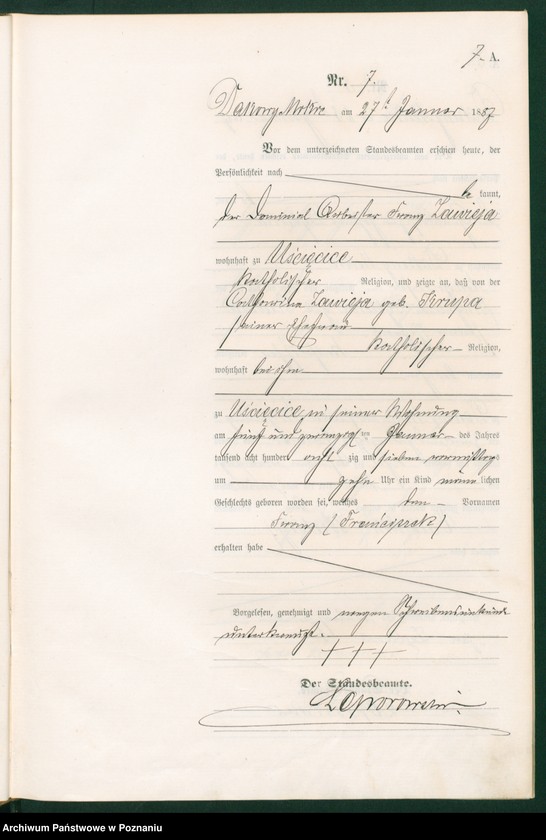 7. A.
Nr. 7.
Dakowy Mokre am 27t Januar 1887
Vor dem unterzeichneten Standesbeamten erschien heute, der
Persönlichkeit nach
be kannt,
der Dominial Arbeiter Franz Zawieja
wohnhaft zu Uścięcice
katholischer Religion, und zeigte an, daß von der
Catharina Zawieja geb. Krupa
seiner Ehefrau
katholischer Religion,
wohnhaft bei ihm
zu Uścięcice in seiner Wohnung
am fünf und zwanzigs ten Januar des Jahres
tausend acht hundert acht zig und sieben vormittags
um zehn Uhr ein Kind männ lichen
Geschlechts geboren worden sei, welches den Vornamen
Franz (Franciszek)
erhalten habe
Vorgelesen, genehmigt und wegen Schreibensunkunde
unterkreuzt.
+++
Der Standesbeamte.
Archiwum Państwowe w Poznaniu